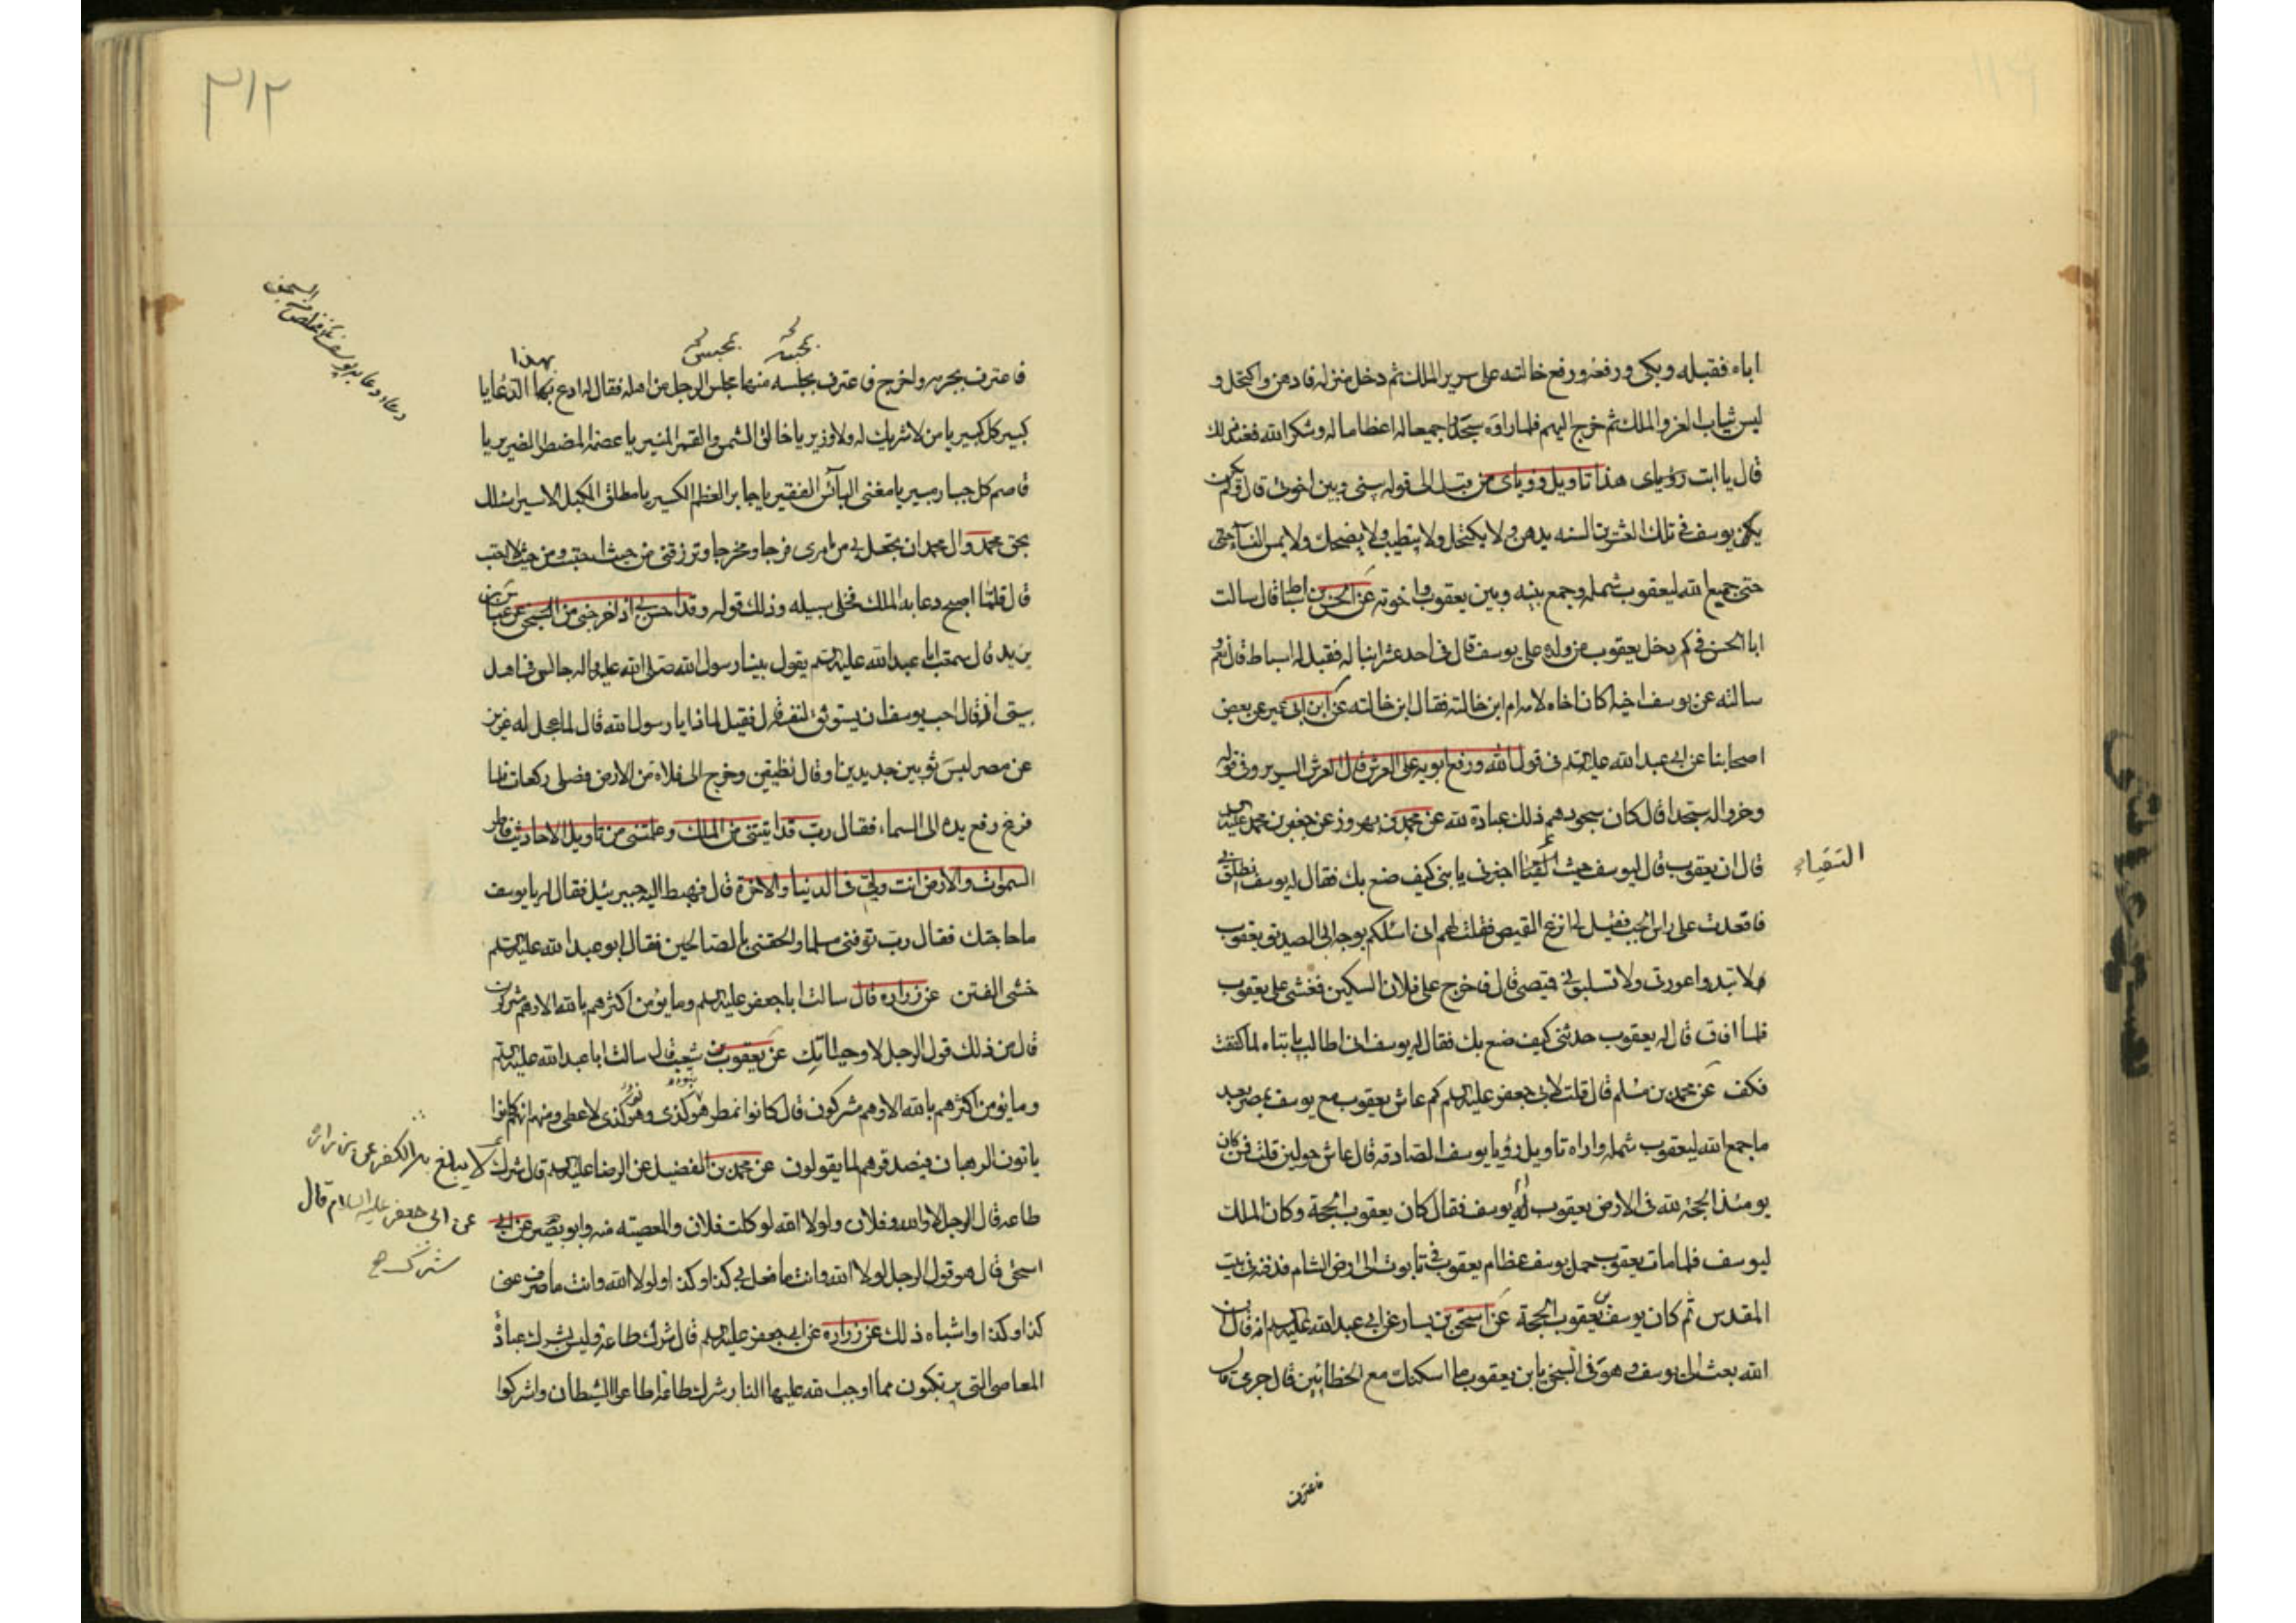 اباه فقبله وبكى ورفعه ورفع خالته على سرير الملك ثم دخل منزله فادهن واكتحل و
لبس ثياب العز والملك ثم خرج اليهم فلما راوه سجدوا جميعا له اعظاما له وشكرا لله فعند ذلك
قال يا ابت رؤياى هذا تاويل رؤياى من قبل الى قوله بينى وبين اخوتى قال ولم يكن
يكن يوسف فى تلك العشرين السنه يدهن ولا يكتحل ولا يتطيب ولا يضحك ولا يمس النساء حتى
حتى جميع الله ليعقوب شمله وجمع بينه وبين يعقوب واخوته عن الحسن بن اسباط قال سالت
ابا الحسن فى كم دخل يعقوب من ولده على يوسف قال فى احد عشر ابنا له فقيل له اسباط قال نعم و
سالته عن يوسف واخيه اكان اخاه لامه ام ابن خالته فقال ابن خالته عن ابن ابى عمير عن بعض
اصحابنا عن ابى عبد الله عليه السلم فى قول الله ورفع ابويه على العرش قال العرش السرير وفى قوله
وخروا له سجدا قال كان سجودهم ذلك عبادة لله عن محمد بن بهروز عن جعفر بن محمد عليه السلم
قال ان يعقوب قال ليوسف حيث التقيا اخبرنى يا بنى كيف صنع بك فقال له يوسف انطلق بى
التقياء
فاقعدت على راس الجب فقيل لى انزع القميص فقلت لهم انى اسئلكم بوجه ابى الصديق يعقوب
ولا تبدوا عورتى ولا تسلبونى قميصى قال فاخرج على فلان السكين فغشى على يعقوب
فلما افاق قال له يعقوب حدثنى كيف صنع بك فقال له يوسف انى اطالب يا ابتاه لما كففت
فكف عن محمد بن مسلم قال قلت لابى جعفر عليه السلم كم عاش يعقوب مع يوسف بمصر بعد
ما جمع الله ليعقوب شمله واراه تاويل رؤيا يوسف الصادقه قال عاش حولين قلت فمن كان
يومئذ الحجة لله فى الارض يعقوب ام يوسف فقال كان يعقوب الحجة وكان الملك
ليوسف فلما مات يعقوب حمل يوسف عظام يعقوب فى تابوت الى ارض الشام فدفنه فى بيت
المقدس ثم كان يوسف بن يعقوب الحجة عن اسحق بن يسار عن ابى عبد الله عليه السلم انه قال ان
الله بعث الى يوسف وهو فى السجن يا ابن يعقوب ما اسكنك مع الخطائين قال جرمى قال
فاعترف
٣١٢
دعاء دعا به يوسف
السجن
بحبسه بمجلسه
بهذا
فاعترف بجرمه واخرج فاعترف بمجلسه منها مجلس الرجل من اهله فقال له ادع بهذا الدعا يا
كبير كل كبير يا من لا شريك له ولا وزير يا خالق الشمس والقمر المنير يا عصمة المضطر الضرير يا
قاصم كل جبار مبير يا مغنى البائس الفقير يا جابر العظم الكسير يا مطلق المكبل الاسير اسئلك
بحق محمد وال محمد ان تجعل لى من امرى فرجا ومخرجا وترزقنى من حيث احتسب ومن حيث لا احتسب
قال فلما اصبح دعا به الملك فخلى سبيله وذلك قوله وقد احسن بى اذ اخرجنى من السجن عن عباس بن
يزيد قال سمعت ابا عبد الله عليه السلم يقول بينا رسول الله صلى الله عليه واله جالس فى اهل
بيته اذ قال احب يوسف ان يستوثق لنفسه قال فقيل لماذا يا رسول الله قال لما عجل له عزيز
عن مصر لبس ثوبين جديدين او قال نظيفين وخرج الى فلاة من الارض فصلى ركعات فلما
فرغ رفع يده الى السماء فقال رب قد اتيتنى من الملك وعلمتنى من تاويل الاحاديث فاطر
السموات والارض انت وليى فى الدنيا والاخرة قال فهبط اليه جبرئيل فقال له يا يوسف
ما حاجتك فقال رب توفنى مسلما والحقنى بالصالحين فقال ابو عبد الله عليه السلم
خشى الفتن عن زراره قال سالت ابا جعفر عليه السلم وما يؤمن اكثرهم بالله الا وهم مشركون
قال من ذلك قول الرجل لا وحياتك عن يعقوب بن شعيب قال سالت ابا عبد الله عليه السلم
وما يؤمن اكثرهم بالله الا وهم مشركون قال كانوا نمطر هو كذى وهو كذى لا عطى ومنهم انهم كانوا
ياتون الرهبان فيصدقوهم لما يقولون عن محمد بن الفضيل عن الرضا عليه السلم قال شرك لا يبلغ به الكفر عن زراره
طاعه قال الرجل لا والله وفلان ولولا الله لوكلت فلان والمعصيه منه وابو بصير عن ابى
عن ابى جعفر عليه السلام قال
شرك صح
اسحق قال هو قول الرجل لولا الله وانت ما فعل بى كذا وكذا ولولا الله وانت ما صرف عنى
كذا وكذا واشباه ذلك عن زراره عن ابى جعفر عليه السلم قال شرك طاعة وليس بشرك عبادة
المعاصى التى يرتكبون مما اوجب الله عليها النار شرك طاعة اطاعوا الشيطان واشركوا